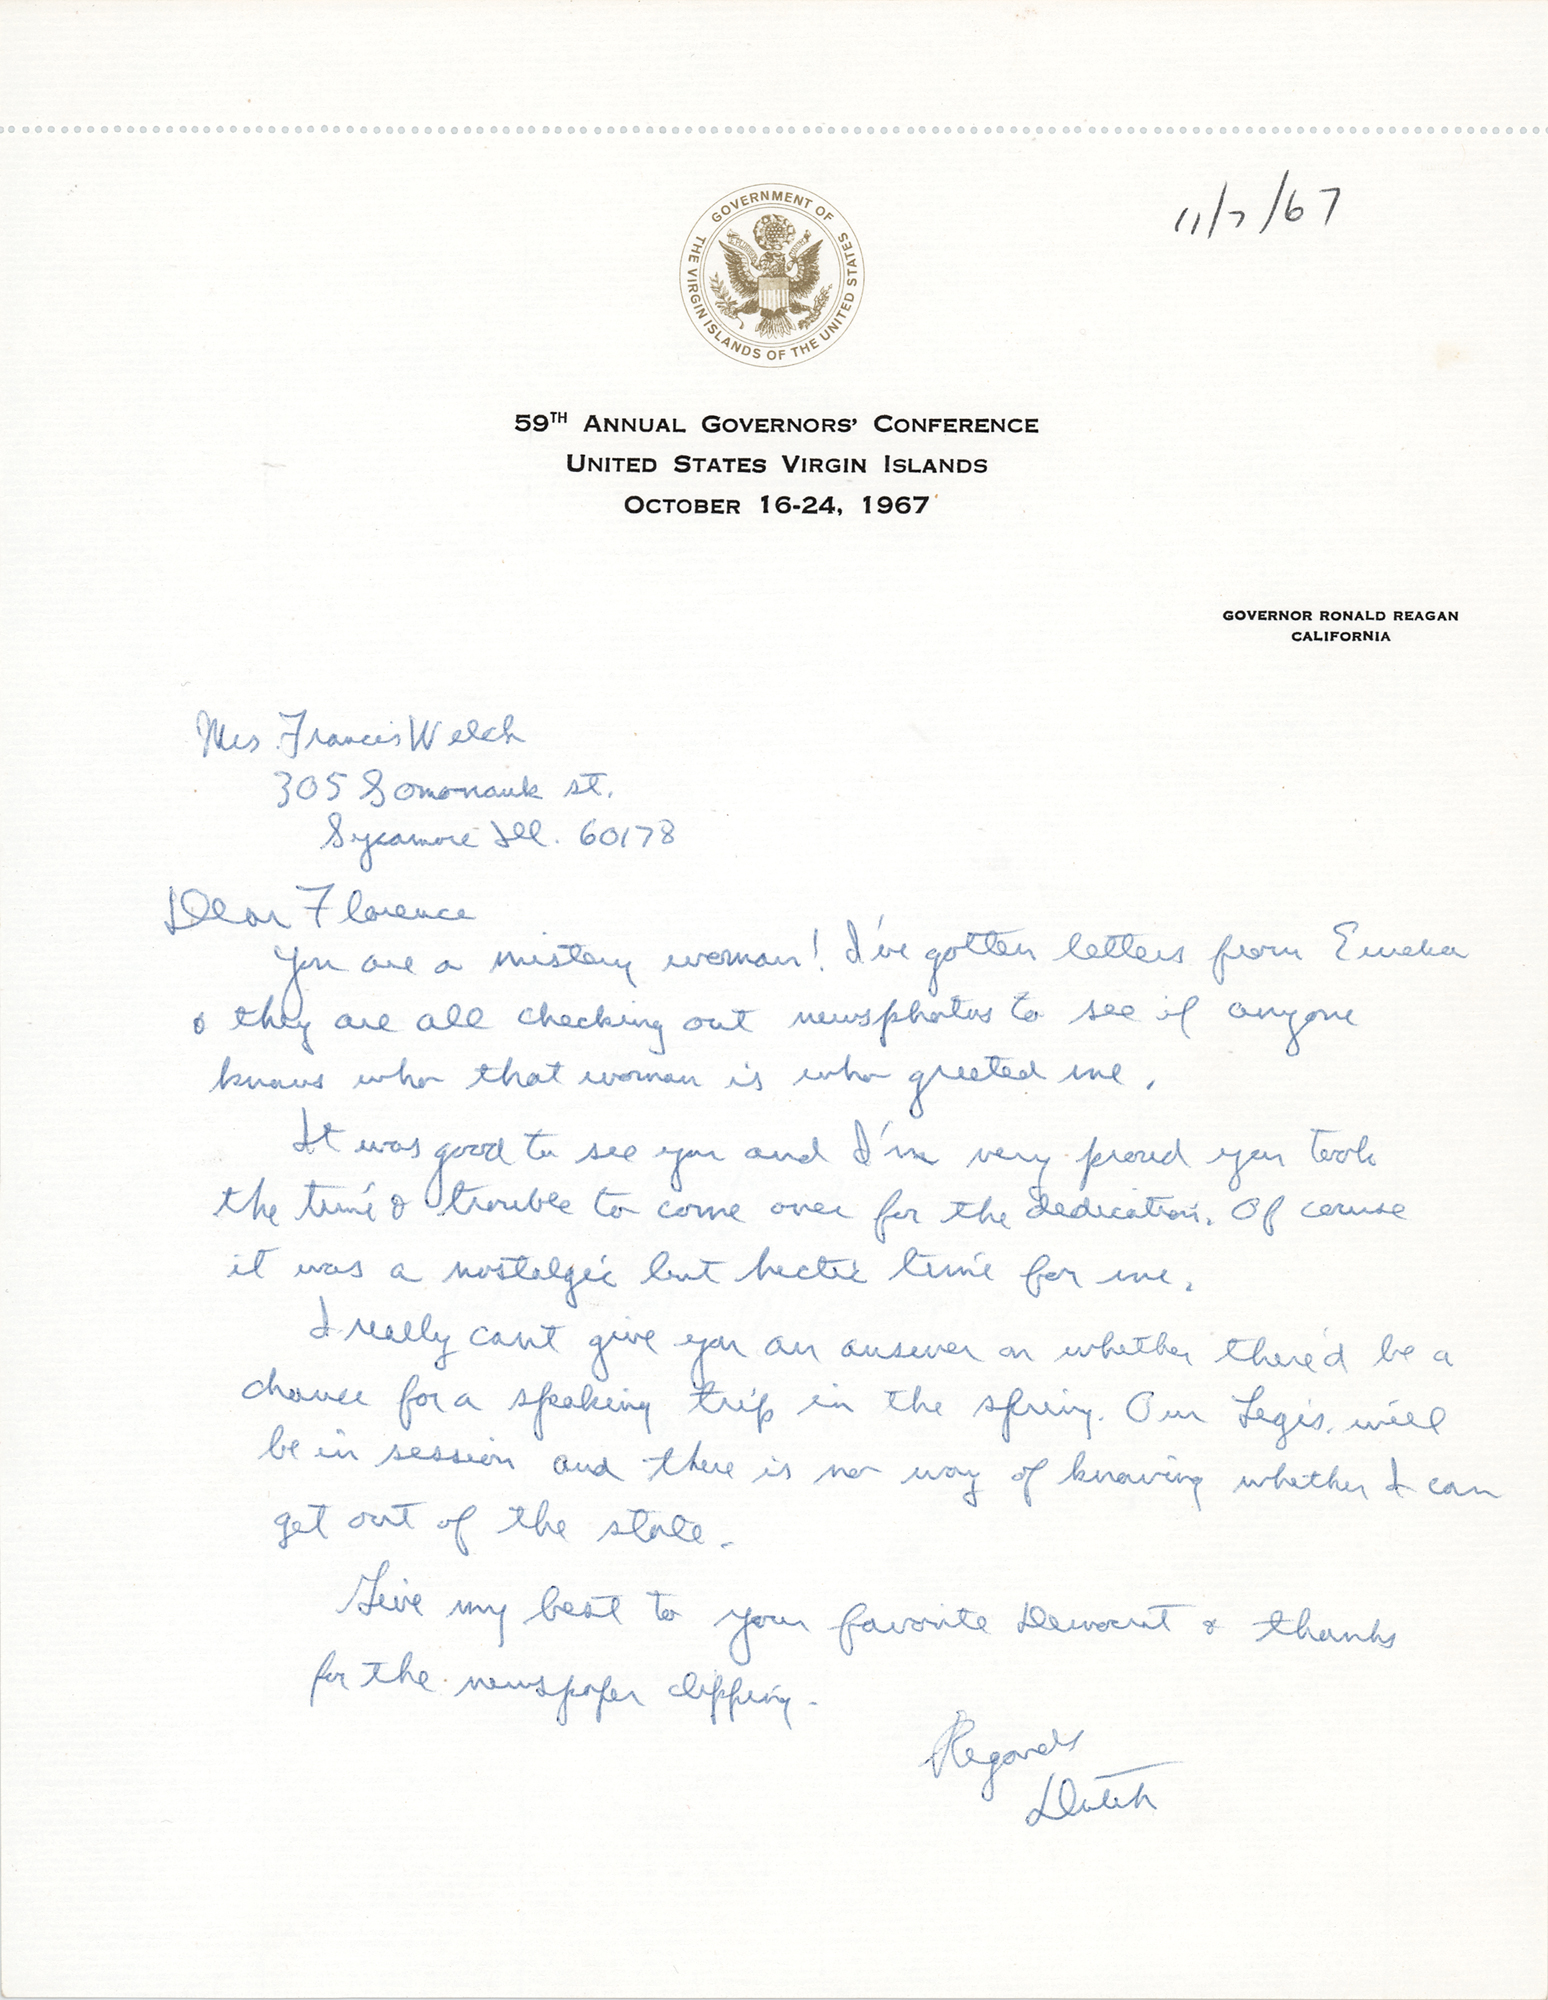 11/7/67
GOVERNMENT OF THE VIRGIN ISLANDS OF THE UNITED STATES
59TH ANNUAL GOVERNORS' CONFERENCE
UNITED STATES VIRGIN ISLANDS
OCTOBER 16-24, 1967
GOVERNOR RONALD REAGAN
CALIFORNIA
Mrs Francis Welch
305 Somonauk st.
Sycamore Ill. 60178
Dear Florence
You are a mistery woman! I've gotten letters from Eureka
& they are all checking out newsphotos to see if anyone
knows who that woman is who greeted me.
It was good to see you and I'm very proud you took
the time & trouble to come over for the dedication. Of course
it was a nostalgic but hectic time for me.
I really cant give you an answer on whether there'd be a
chance for a speaking trip in the spring. Our Legis. will
be in session and there is no way of knowing whether I can
get out of the state.
Give my best to your favorite Democrat & thanks
for the newspaper clipping.
Regards
Dutch